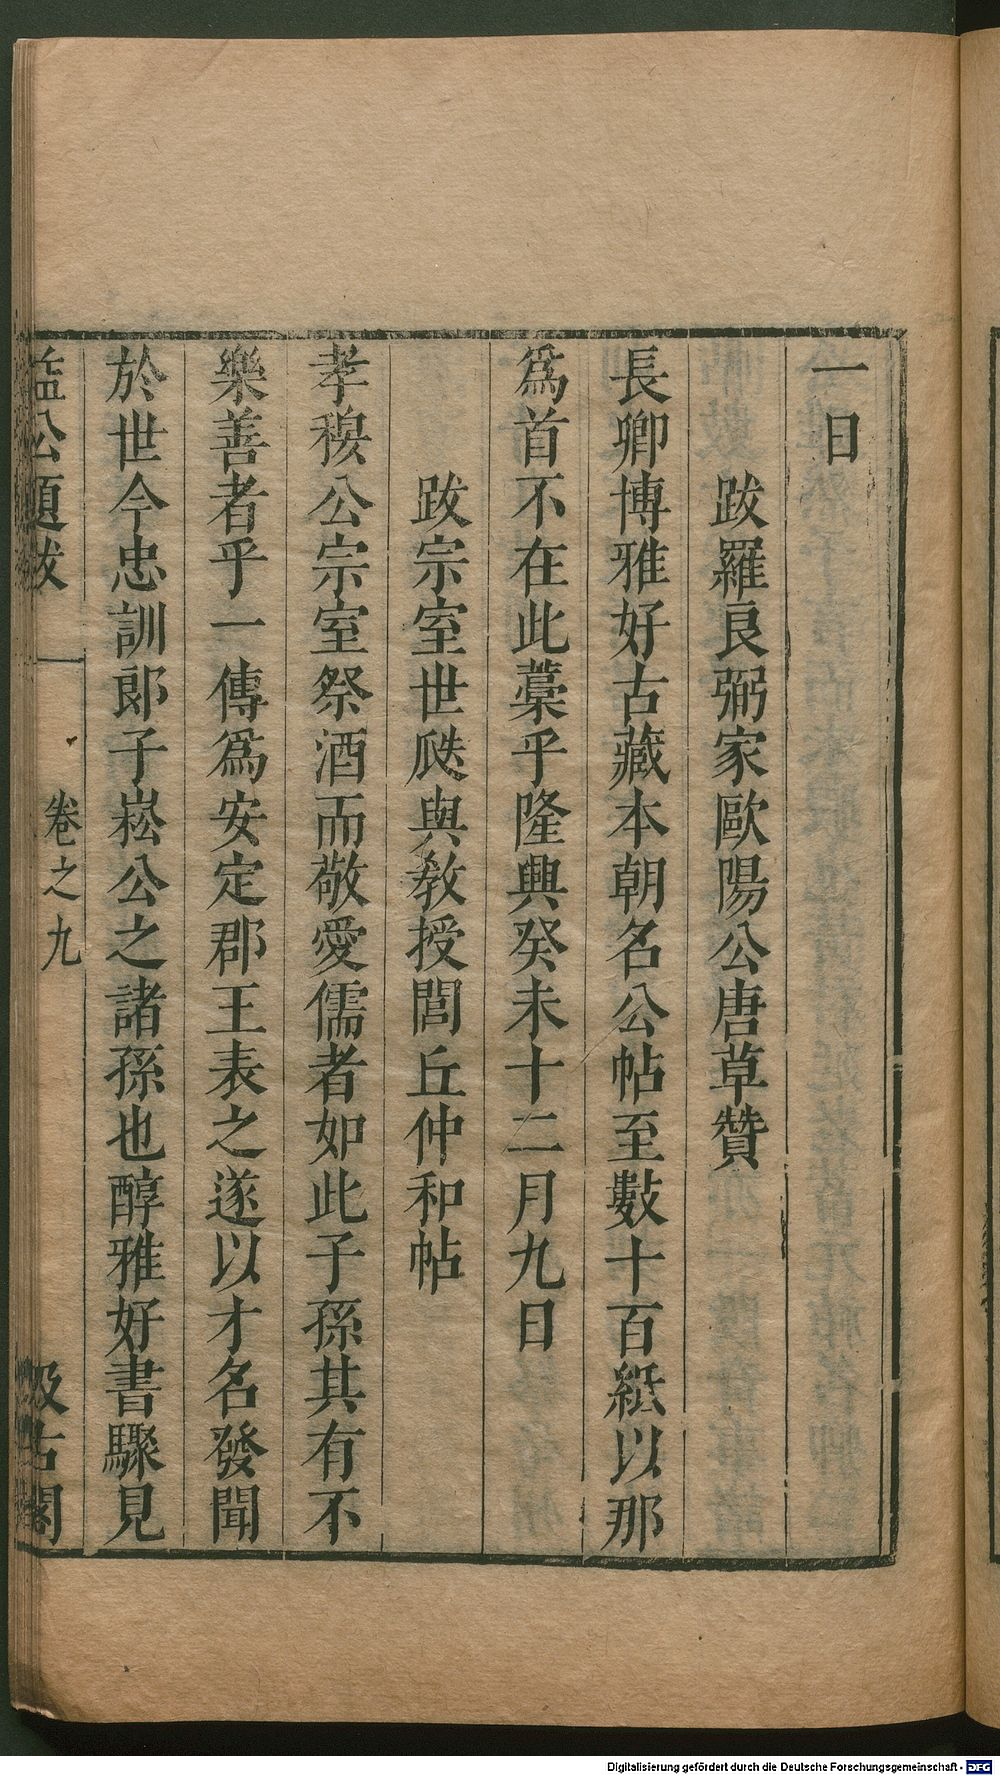 一日
跋羅良弼家歐陽公唐草贊
長卿博雅好古藏本朝名公帖至數十百紙以那
爲首不在此藁乎隆興癸未十二月九日
跋宗室世瓞與教授閭丘仲和帖
孝穆公宗室祭酒而敬愛儒者如此子孫其有不
樂善者乎一傳爲安定郡王表之遂以才名發聞
於世今忠訓郎子崧公之諸孫也醇雅好書驟見
益公題跋 卷之九 汲古閣
Digitalisierung gefördert durch die Deutsche Forschungsgemeinschaft - DFG